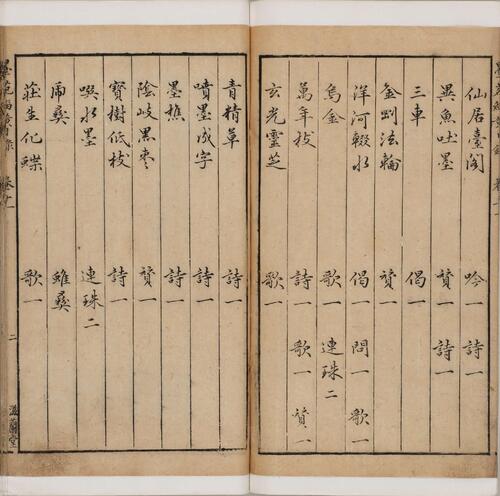 仙居臺閣 吟一 詩一
異魚吐墨 贊一 詩一
三車 偈一
金剛法輪 贊一
洋河輟水 偈一 問一 歌一
烏金 歌一 連珠二
萬年枝 詩一 歌一 贊一
玄光靈芝 歌一
青精草 詩一
噴墨成字 詩一
墨樵 詩一
陰岐黑棗 贊一
寶樹低枝 詩一
噀水墨 連珠二
虎彝 蜼彝
莊生化蝶 歌一
二
滋蘭堂